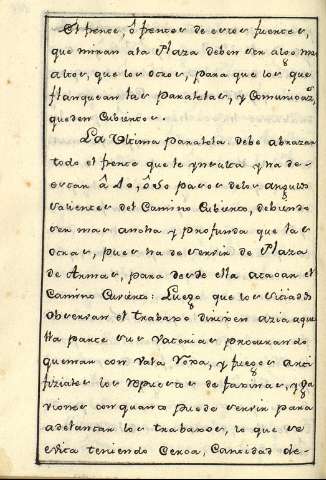 El frente, ô frentes de estos fuertes,
que miran ala Plaza deben ser algo mas
altos, que los otros, para que los que
flanquean las paralelas, y Comunicaz.
queden Cubiertos.
La Ultima paralela debe abrazar
todo el frente que se ynsulta y ha de
estar â 40, ô 50 pasos delos angulos
salientes del Camino Cubierto, debiendo
ser mas ancha y profunda que las
otras, pues ha de servir de Plaza
de Armas, para desde ella atacar el
Camino Cuvierto: Luego que los sitiados
observan el trabaxo dirixen azia aque
lla parte sus vaterias procurando
quemar con vala roxa, y fuegos arti
fiziales los repuestos de faxinas, y ga
viones con quanto puede servir para
adelantar los trabaxos, lo que se
evita teniendo Cerca, Cantidad de-